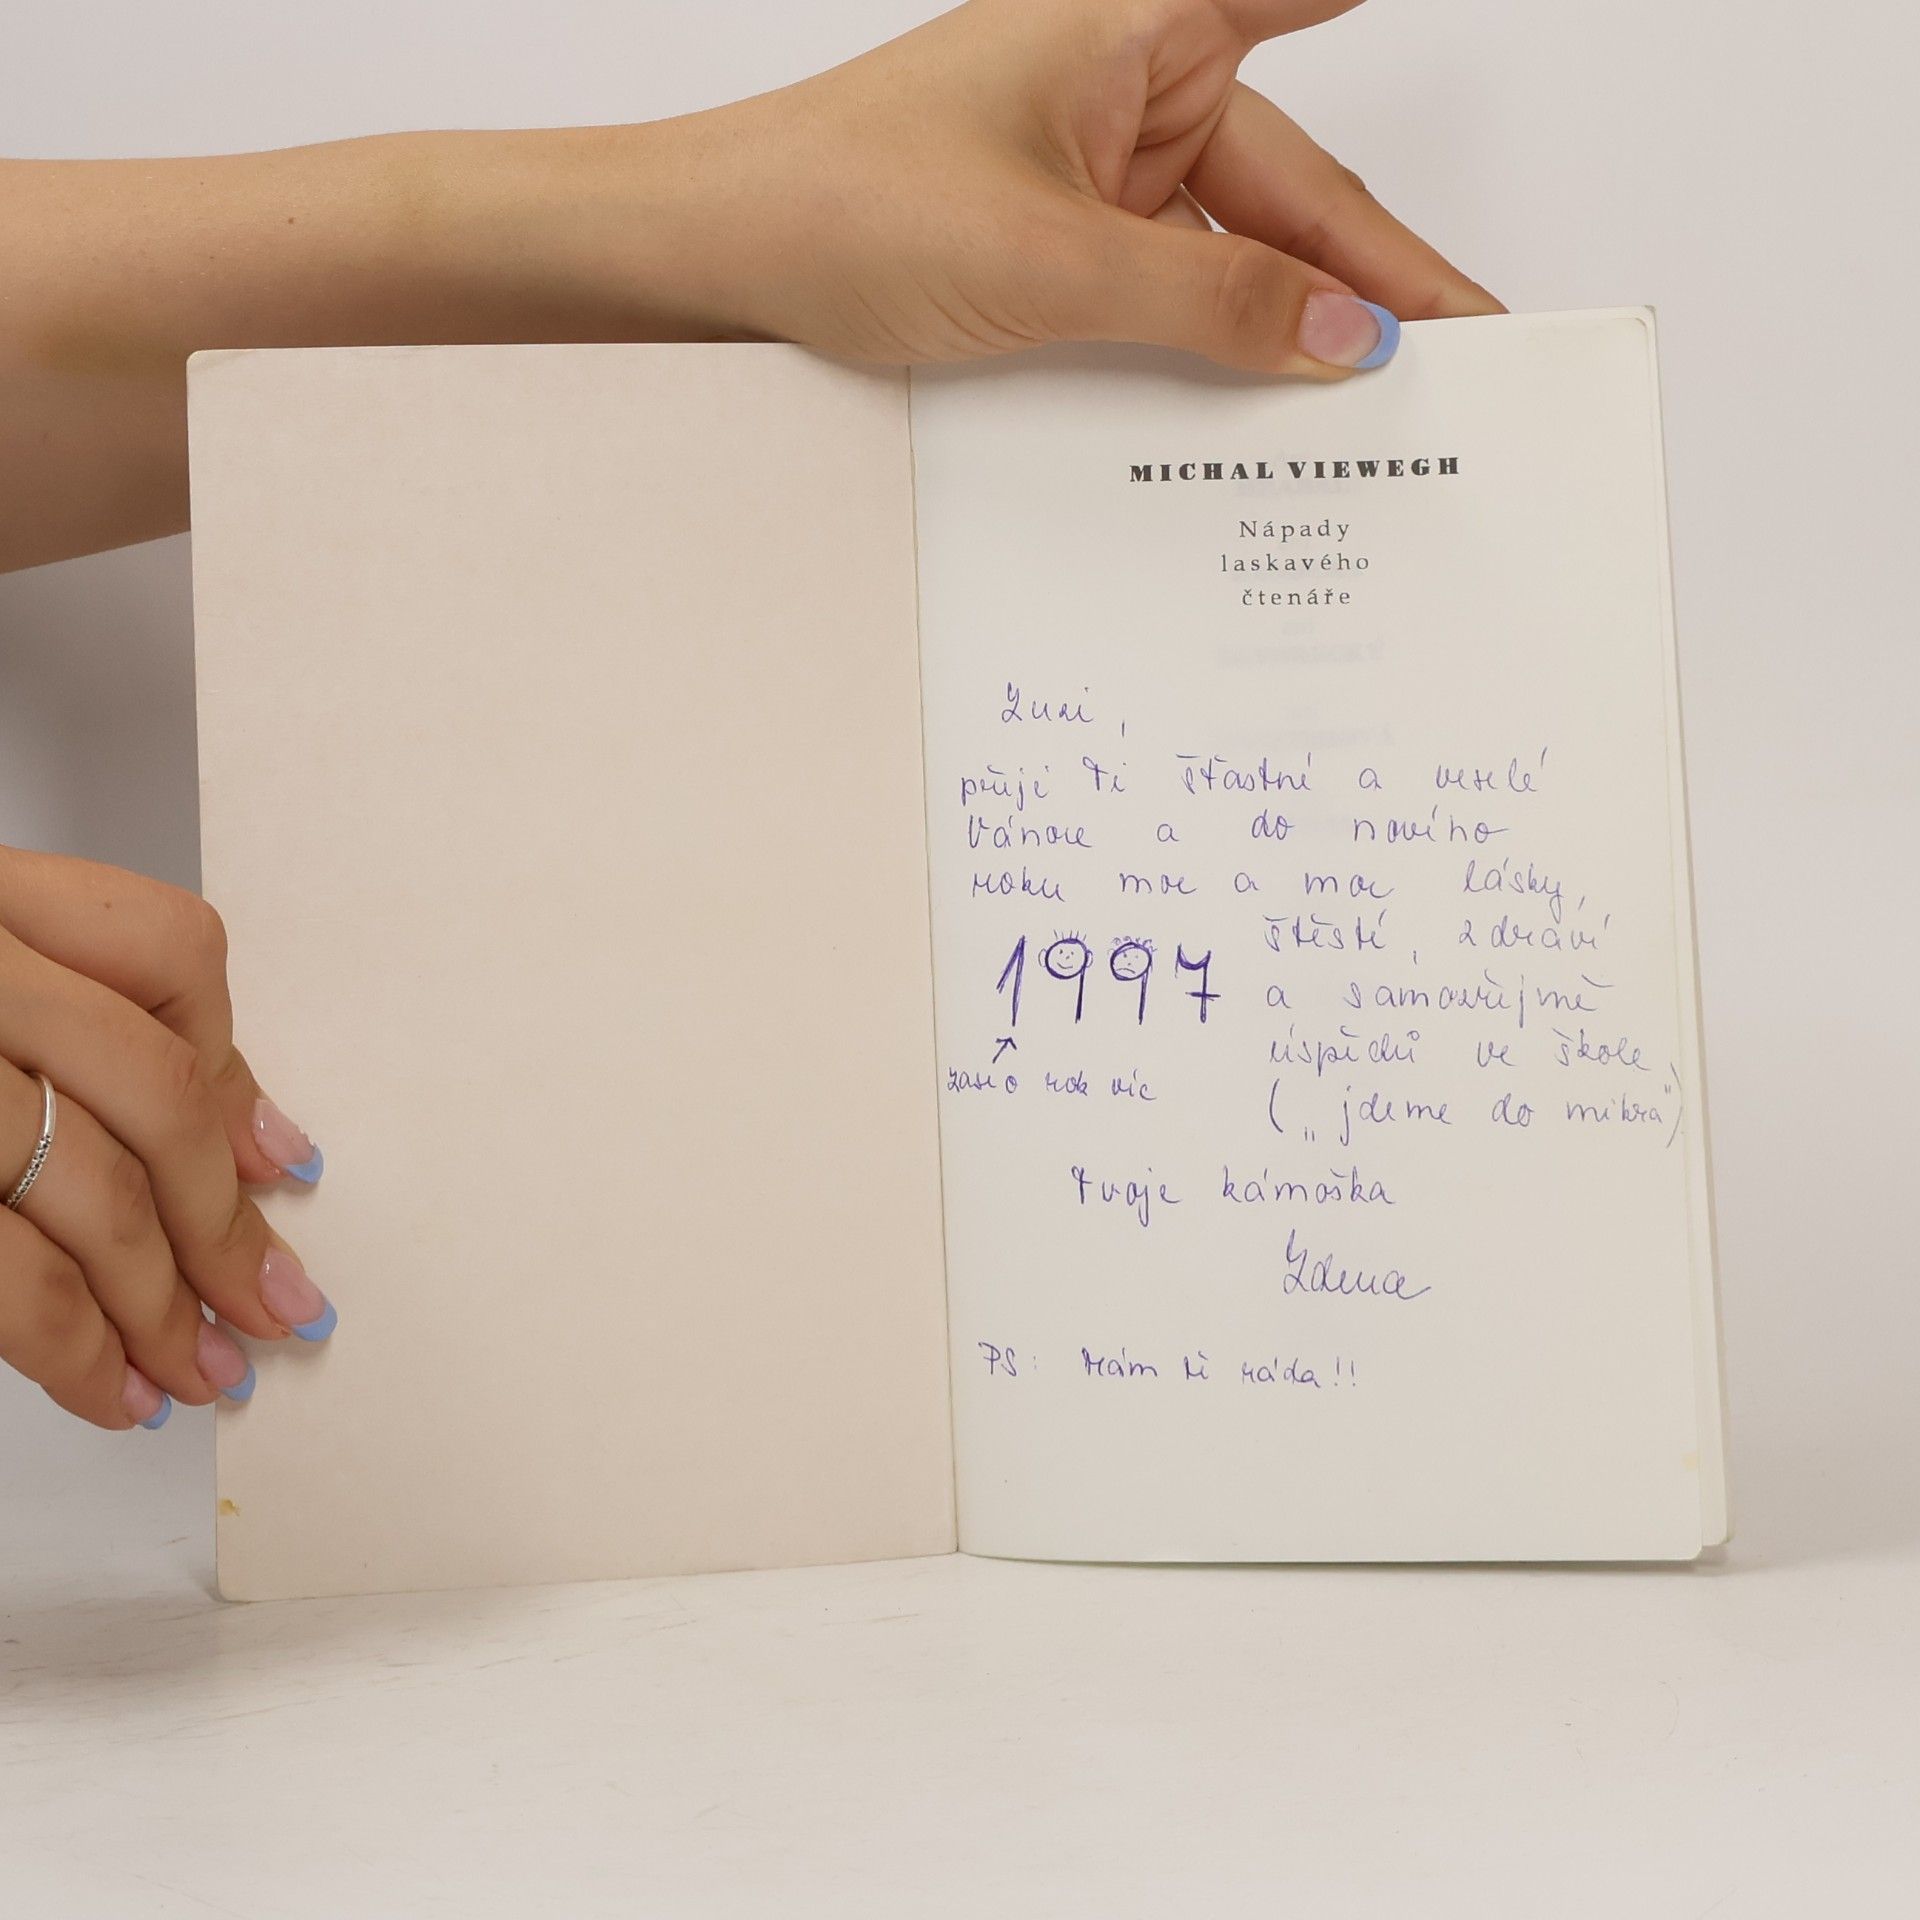 MICHAL VIEWEGH
Nápady
laskavého
čtenáře
Zuzi,
přeji Ti šťastné a veselé
Vánoce a do nového
roku moc a moc lásky,
štěstí, zdraví
1997
a samozřejmě
úspěchů ve škole
zase o rok víc
("jdeme do mikra")
Tvoje kámoška
Zdena
PS: Mám tě ráda!!